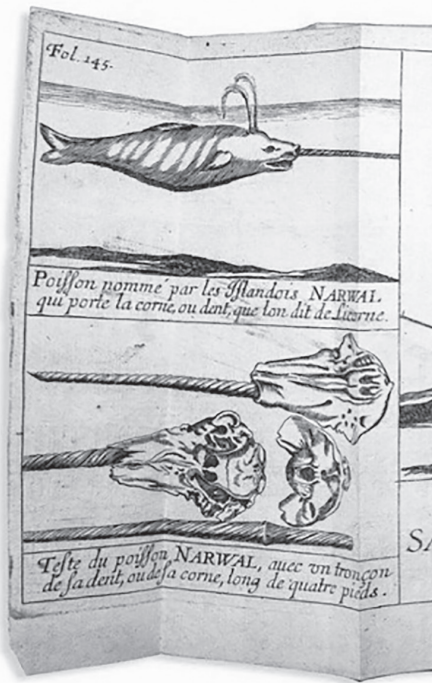 Fol. 145.
Poiſſon nommé par les Iſlandois NARWAL
qui porte la corne, ou dent, que lon dit de Licorne.
Teſte du poiſſon NARWAL, avec vn tronçon
de ſa dent, ou de ſa corne, long de quatre pieds.
SA